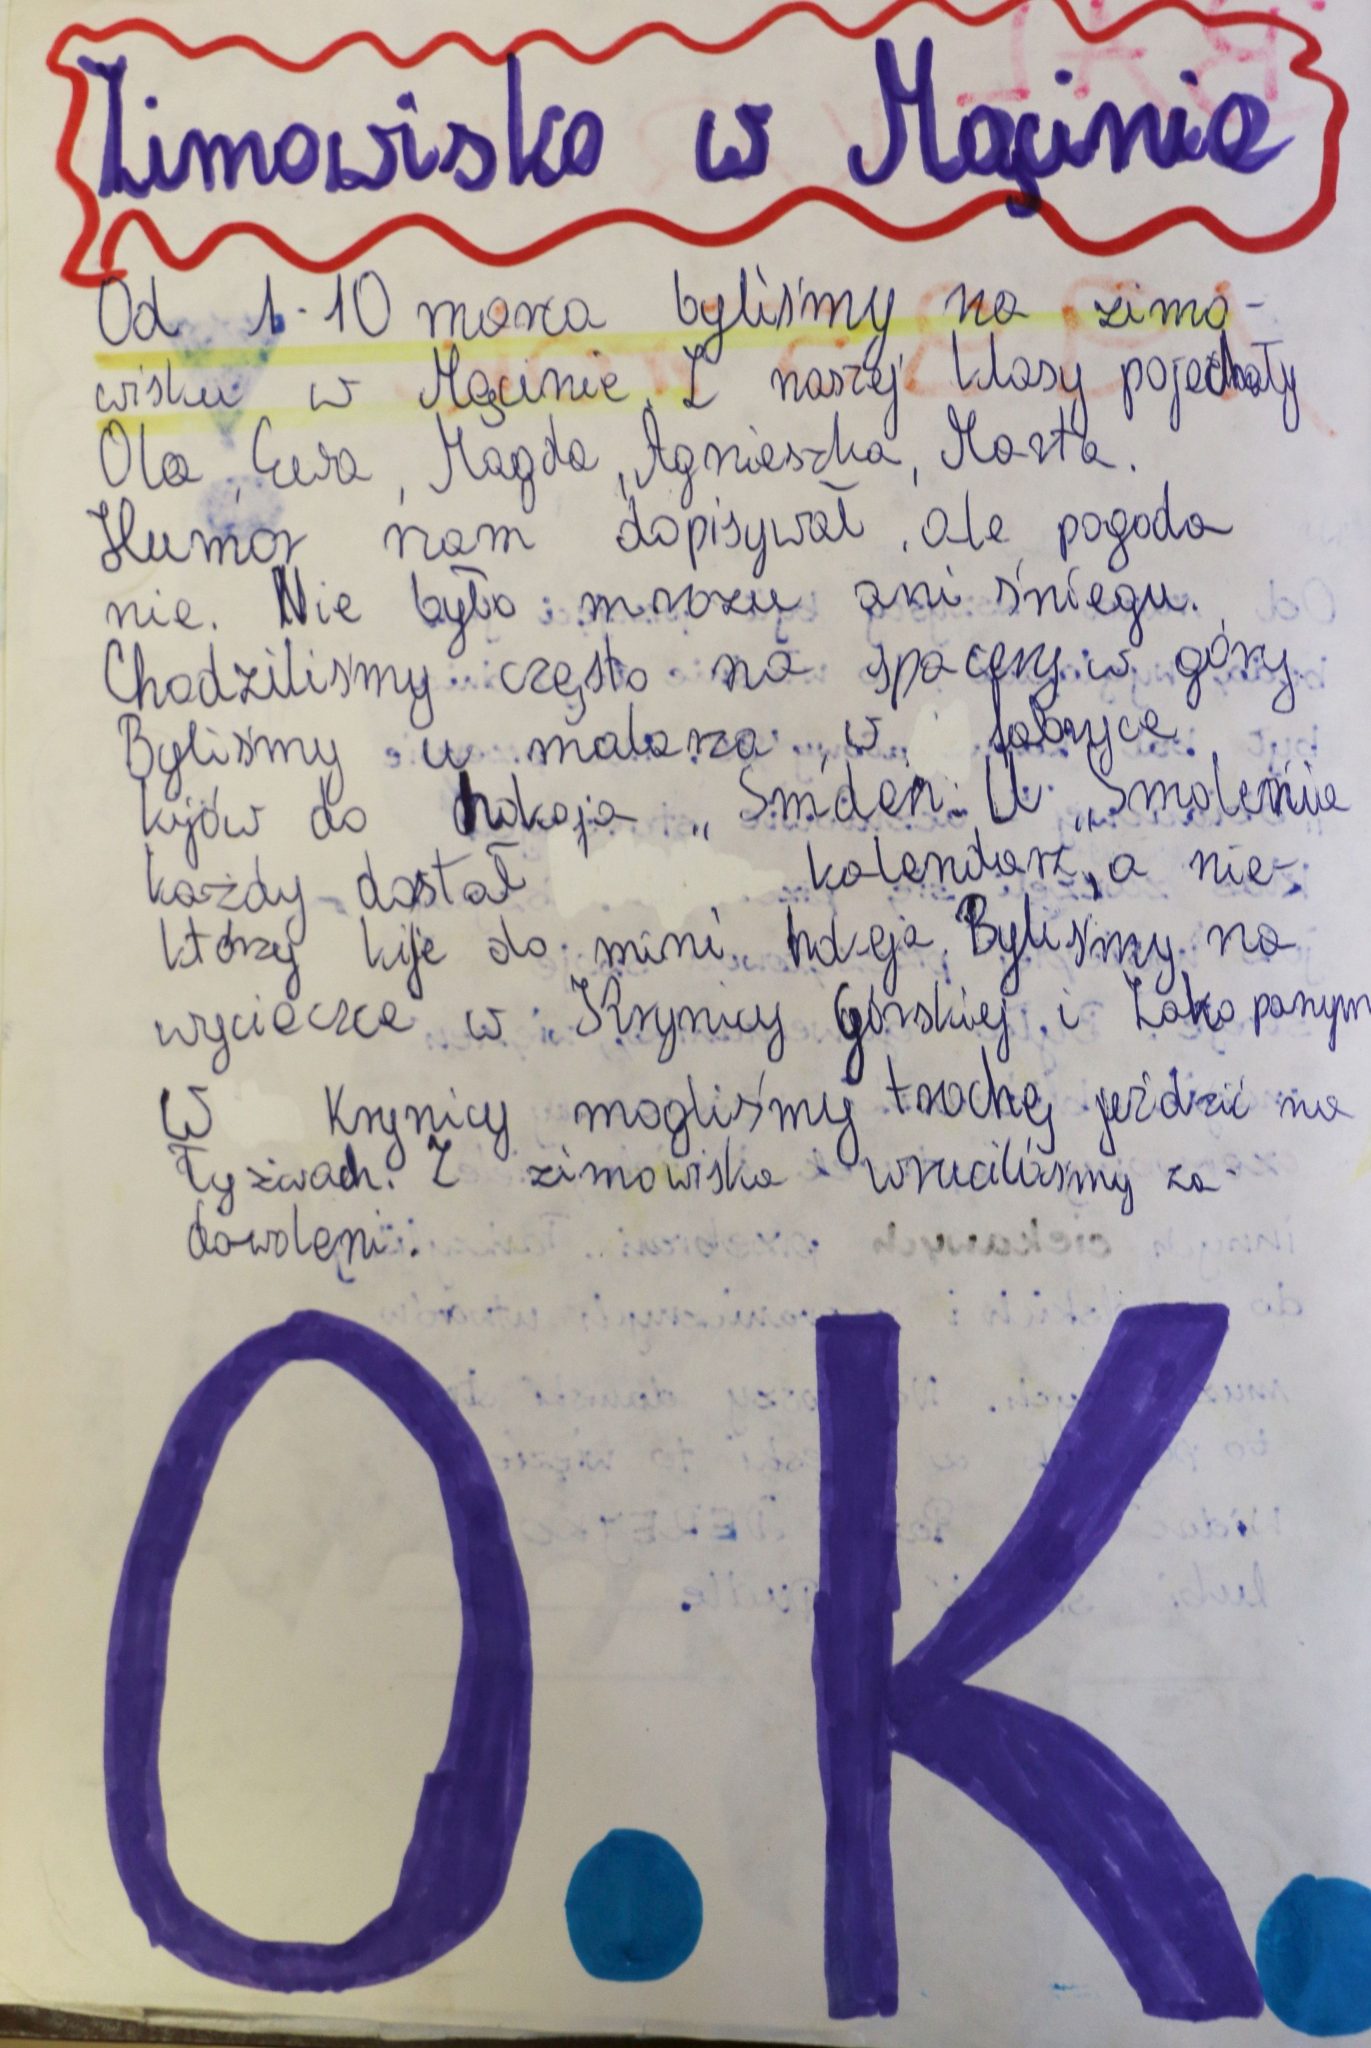 Zimowisko w Męcinie
Od 1-10 marca byliśmy na zimo-
wisku w Męcinie. Z naszej klasy pojechały
Ola, Ewa, Magda, Agnieszka, Marta.
Humor nam dopisywał, ale pogoda
nie. Nie było mrozu ani śniegu.
Chodziliśmy często na spacery w góry.
Byliśmy u malarza, w fabryce
kijów do hokeja „Smoleń. U „Smolenia
każdy dostał kalendarz, a nie-
którzy kije do mini hokeja. Byliśmy na
wycieczce w Krynicy Górskiej i Zakopanym
W Krynicy mogliśmy trochę jeździć na
łyżwach. Z zimowiska wruciliśmy za-
dowoleni.
O.K.